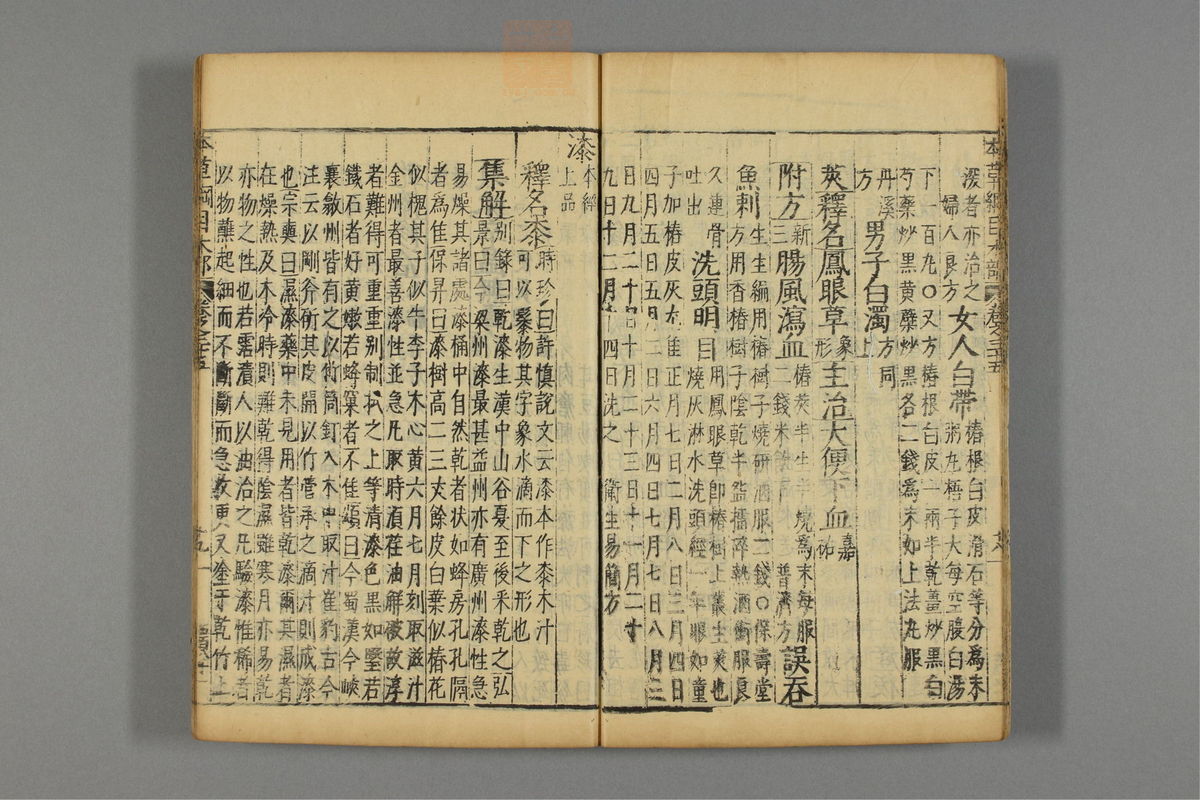 本草綱目木部 卷之三十五
渂者亦治之 女人白帶 椿根白皮滑石等分爲末
婦人良方 粥丸梧子大每空腹白湯
下一百丸○又方椿根白皮一兩半乾薑炒黑白
芍藥炒黑黃蘗炒黑各二錢爲末如上法丸服
丹溪方 男子白濁 方同上
莢釋名鳳眼草 象形 主治大便下血 嘉祐
附方 新三 腸風瀉血 椿莢半生半燒爲末每服二錢米飲下 普濟方 誤吞
魚刺 生生編用椿樹子燒研酒服二錢○保壽堂
方用香椿樹子陰乾半盌擂碎熱酒衝服良
久連骨吐出 洗頭明目 用鳳眼草即椿樹上叢生莢也
燒灰淋水洗頭經一年眼如童
子加椿皮灰尤佳正月七日二月八日三月四日
四月五日五月二日六月四日七月七日八月三
日九月二十日十月二十三日十一月二十
九日十二月十四日洗之 衛生易簡方
漆 本經上品
釋名桼 時珍曰許慎說文云漆本作桼木汁
可以髹物其字象水滴而下之形也
集解 别錄曰乾漆生漢中山谷夏至後采乾之弘
景曰今梁州漆最甚益州亦有廣州漆性急
易燥其諸處漆桶中自然乾者狀如蜂房孔孔隔
者爲佳保昇曰漆樹高二三丈餘皮白葉似椿花
似槐其子似牛李子木心黃六月七月刻取滋汁
金州者最善漆性並急凡取時須荏油解破故淳
者難得可重重别制拭之上等清漆色黑如瑿若
鐵石者好黃嫩若蜂窠者不佳頌曰今蜀漢今峽
襄歙州皆有之以竹筒釘入木中取汁崔豹古今
注云以剛斧斫其皮開以竹管承之滴汁則成漆
也宗奭曰濕漆藥中未見用者皆乾漆爾其濕者
在燥熱及木冷時則難乾得陰濕雖寒月亦易乾
亦物之性也若霑漬人以油治之凡驗漆惟稀者
以物蘸起細而不斷斷而急收更又塗于乾竹上
本草綱目木部 卷之三十五